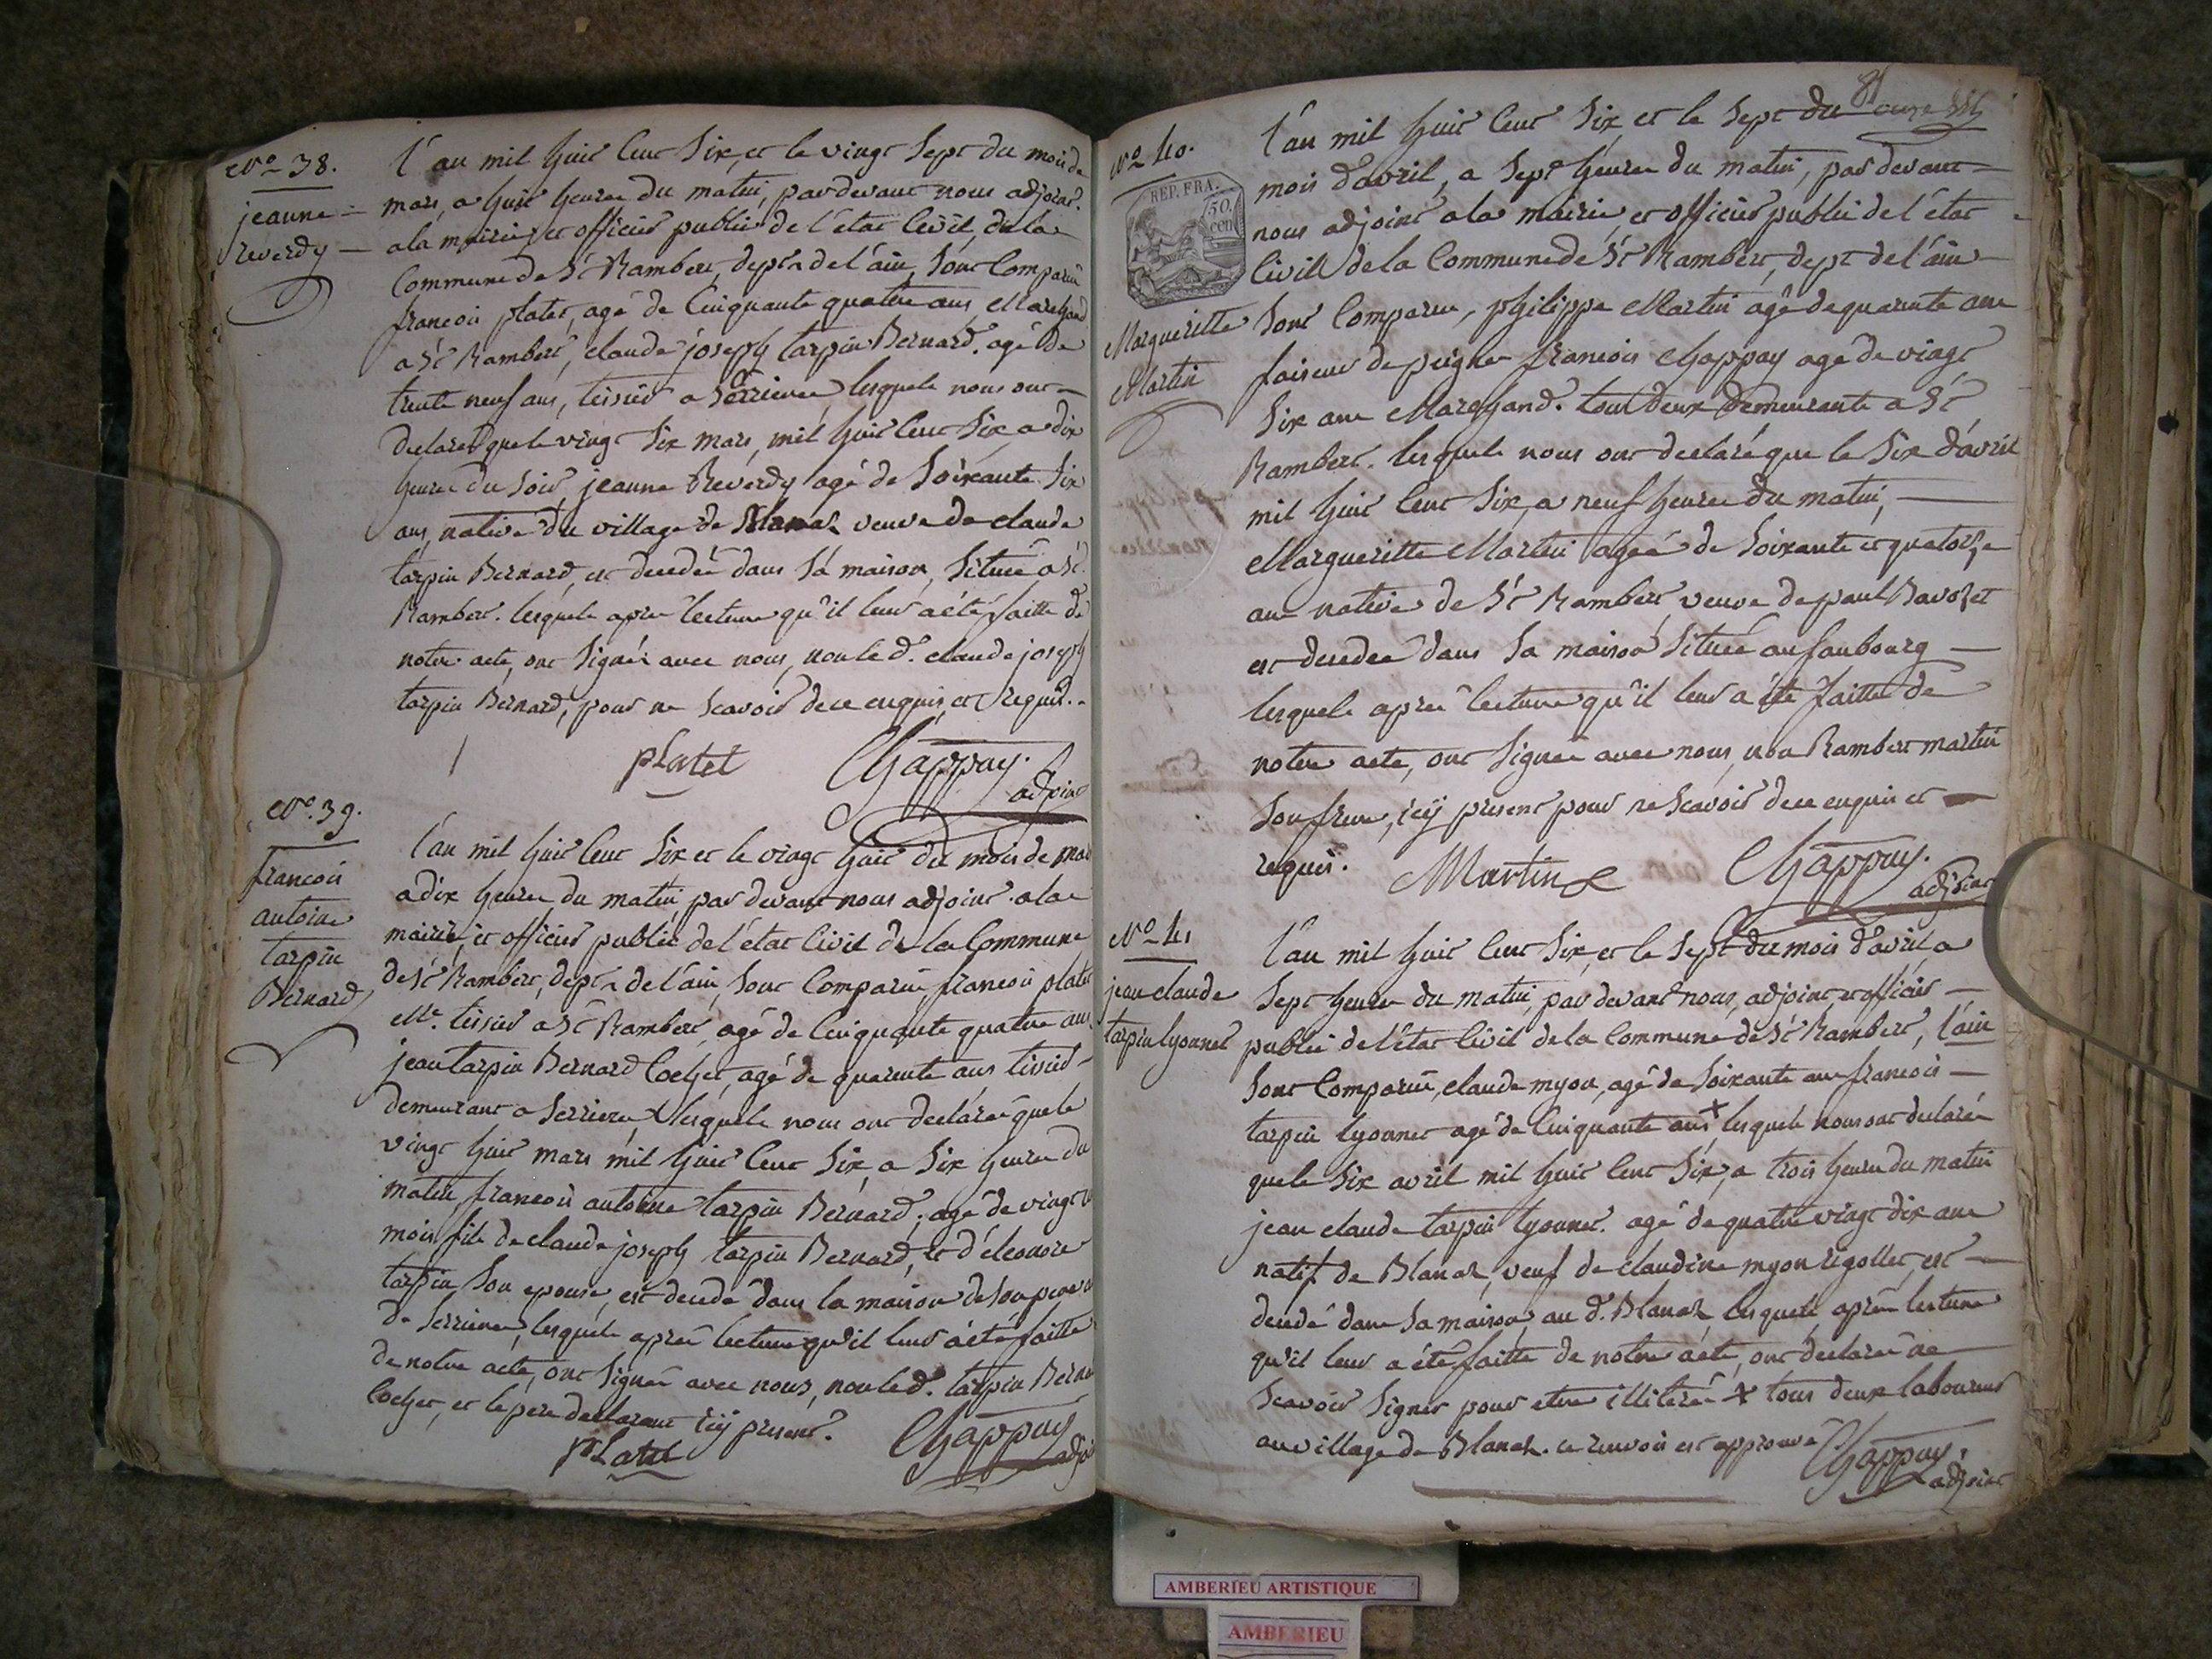 N° 38.
jeanne
reverdy
l'an mil huit cent six, et le vingt sept du mois de
mars, a huit heures du matin, pardevant nous adjoint
a la mairie, et officier public de l'état civil, de la
Commune de St Rambert, dept de l'ain, sont comparu
francois platet, agé de cinquante quatre ans, Marchand
a St Rambert, claude joseph tarpin Bernard, agé de
trente neuf ans, tissier a Serrieres, lesquels nous ont
declaré que le vingt six mars, mil huit cent six a dix
heures du soir, jeanne Reverdy agé de soixante six
ans, native du village de Blanaz veuve de claude
tarpin Bernard, est decedée dans sa maison, située a St
Rambert. lesquels apres lecture qu'il leur a été faitte de
notre acte, ont signés avec nous, non le d. claude joseph
tarpin Bernard, pour ne scavoir de ce enquis, et requis.
pLatet Chappuy.
adjoint
N° 39.
francois
antoine
tarpin
Bernard
l'an mil huit cent six et le vingt huit du mois de mars
a dix heures du matin, par devant nous adjoint a la
mairie, et officier public de l'état civil de la Commune
de St Rambert, dept de l'ain, sont comparu, francois platet
Md. tissier a St Rambert, agé de cinquante quatre ans
jean tarpin Bernard Cochet, agé de quarente ans tissier
demeurant a Serrieres, lesquels nous ont declaré que le
vingt huit mars mil huit cent six, a six heures du
matin, francois antoine tarpin Bernard, agé de vingt
mois fils de claude joseph tarpin Bernard, et d'éleonore
tarpin son epouse, est decedé dans la maison de son pere
de Serrieres, lesquels apres lecture qu'il leur a été faitte
de notre acte, ont signé avec nous, non le d. tarpin Bernard
Cochet, et le pere declarant icy present.
pLatet Chappuy
adjoint
81
N° 40.
REP. FRA.
50.
cen
Margueritte
Martin
l'an mil huit cent six et le sept du
mois d'avril, a sept heures du matin, par devant
nous adjoint a la mairie, et officier public de l'état
Civil de la Commune de St Rambert, dept de l'ain
sont comparus, philippe Martin agé de quarente ans
faiseur de peignes francois Chappuy agé de vingt
six ans Marchand. tous deux demeurants a St
Rambert. lesquels nous ont declaré que le six d'avril
mil huit cent six, a neuf heures du matin,
Margueritte Martin agée de soixante et quatorze
ans native de St Rambert, veuve de paul Ravozet
est decedée dans sa maison située au faubourg
lesquels apres lecture qu'il leur a été faitte de
notre acte, ont signés avec nous, non Rambert martin
son frere, icy present pour ne scavoir de ce enquis et
requis. Martin Chappuy.
adjoint
N° 41
jean claude
tarpin lyonnet
l'an mil huit cent six, et le sept du mois d'avril, a
sept heures du matin, par devant nous, adjoint et officier
public de l'état civil de la Commune de St Rambert, l'ain
sont comparu, claude myon, agé de soixante ans francois
tarpin lyonnet agé de cinquante ans x, lesquels nous ont declaré
que le six avril mil huit cent six, a trois heures du matin
jean claude tarpin lyonnet. agé de quatre vingt dix ans
natif de Blanaz, veuf de claudine myon rigollet, est
decedé dans sa maison, au d. Blanaz lesquels apres lecture
qu'il leur a été faitte de notre acte, ont declaré ne
scavoir signer pour etre illiteré x tous deux laboureurs
au village de Blanaz. ce renvoi est approuvé Chappuy.
adjoint
AMBERIEU ARTISTIQUE
AMBERIEU